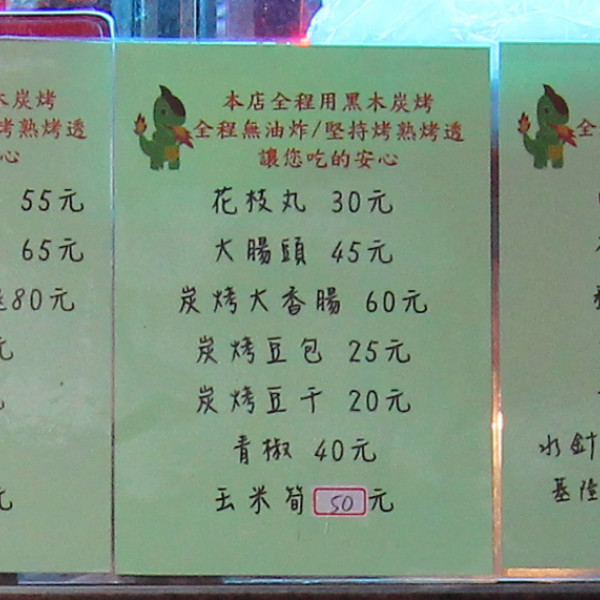 木炭烤
烤熟烤透
心
55元
65元
80元
元
元
元
本店全程用黑木炭烤
全程無油炸/堅持烤熟烤透
讓您吃的安心
花枝丸 30元
大腸頭 45元
炭烤大香腸 60元
炭烤豆包 25元
炭烤豆干 20元
青椒 40元
玉米筍 50元
全
水針
基隆